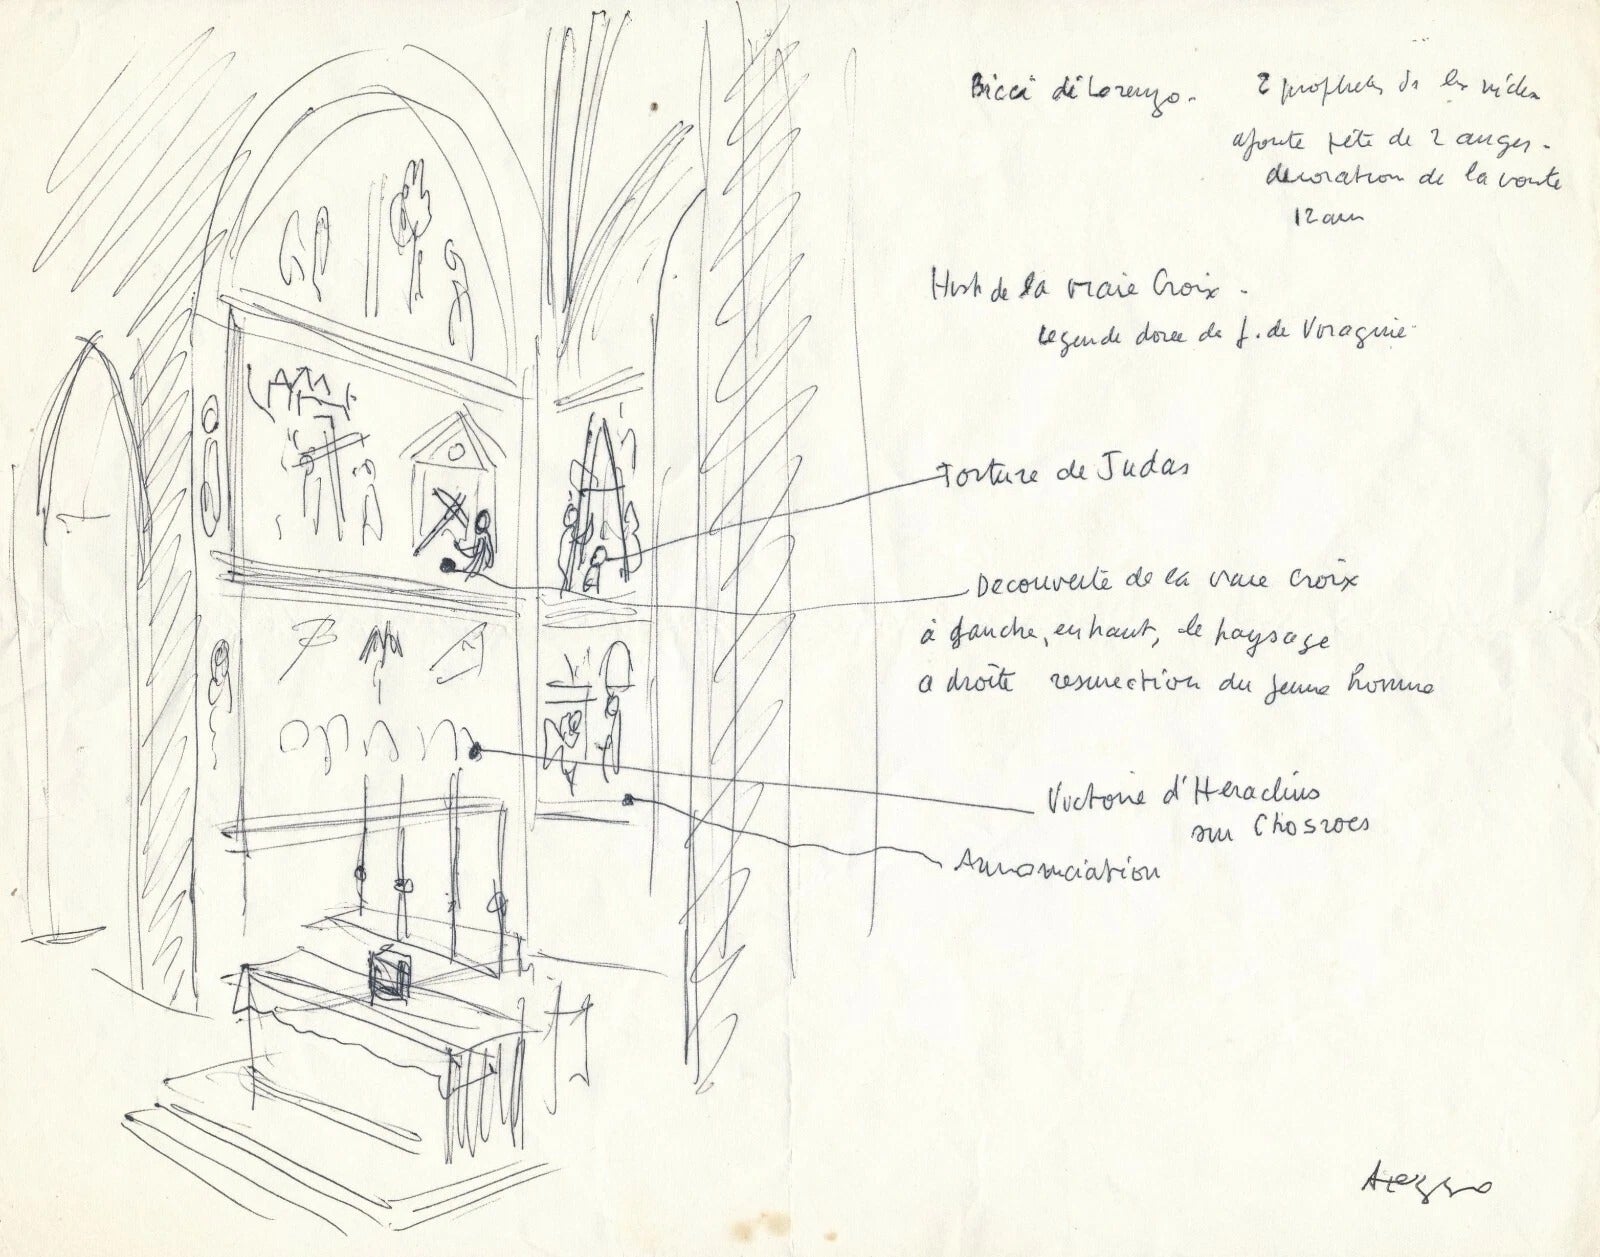 Bicci di Lorenzo - 2 prophetes ds les
ajoute tête de 2 anges -
decoration de la voute
12 ans
Hist de la vraie Croix -
legende doree de J. de Voragine
Torture de Judas
Decouverte de la vraie Croix
à gauche, en haut, le paysage
a droite resurection du jeune homme
Victoire d'Heraclius
sur Chosroes
Annonciation
Arezzo